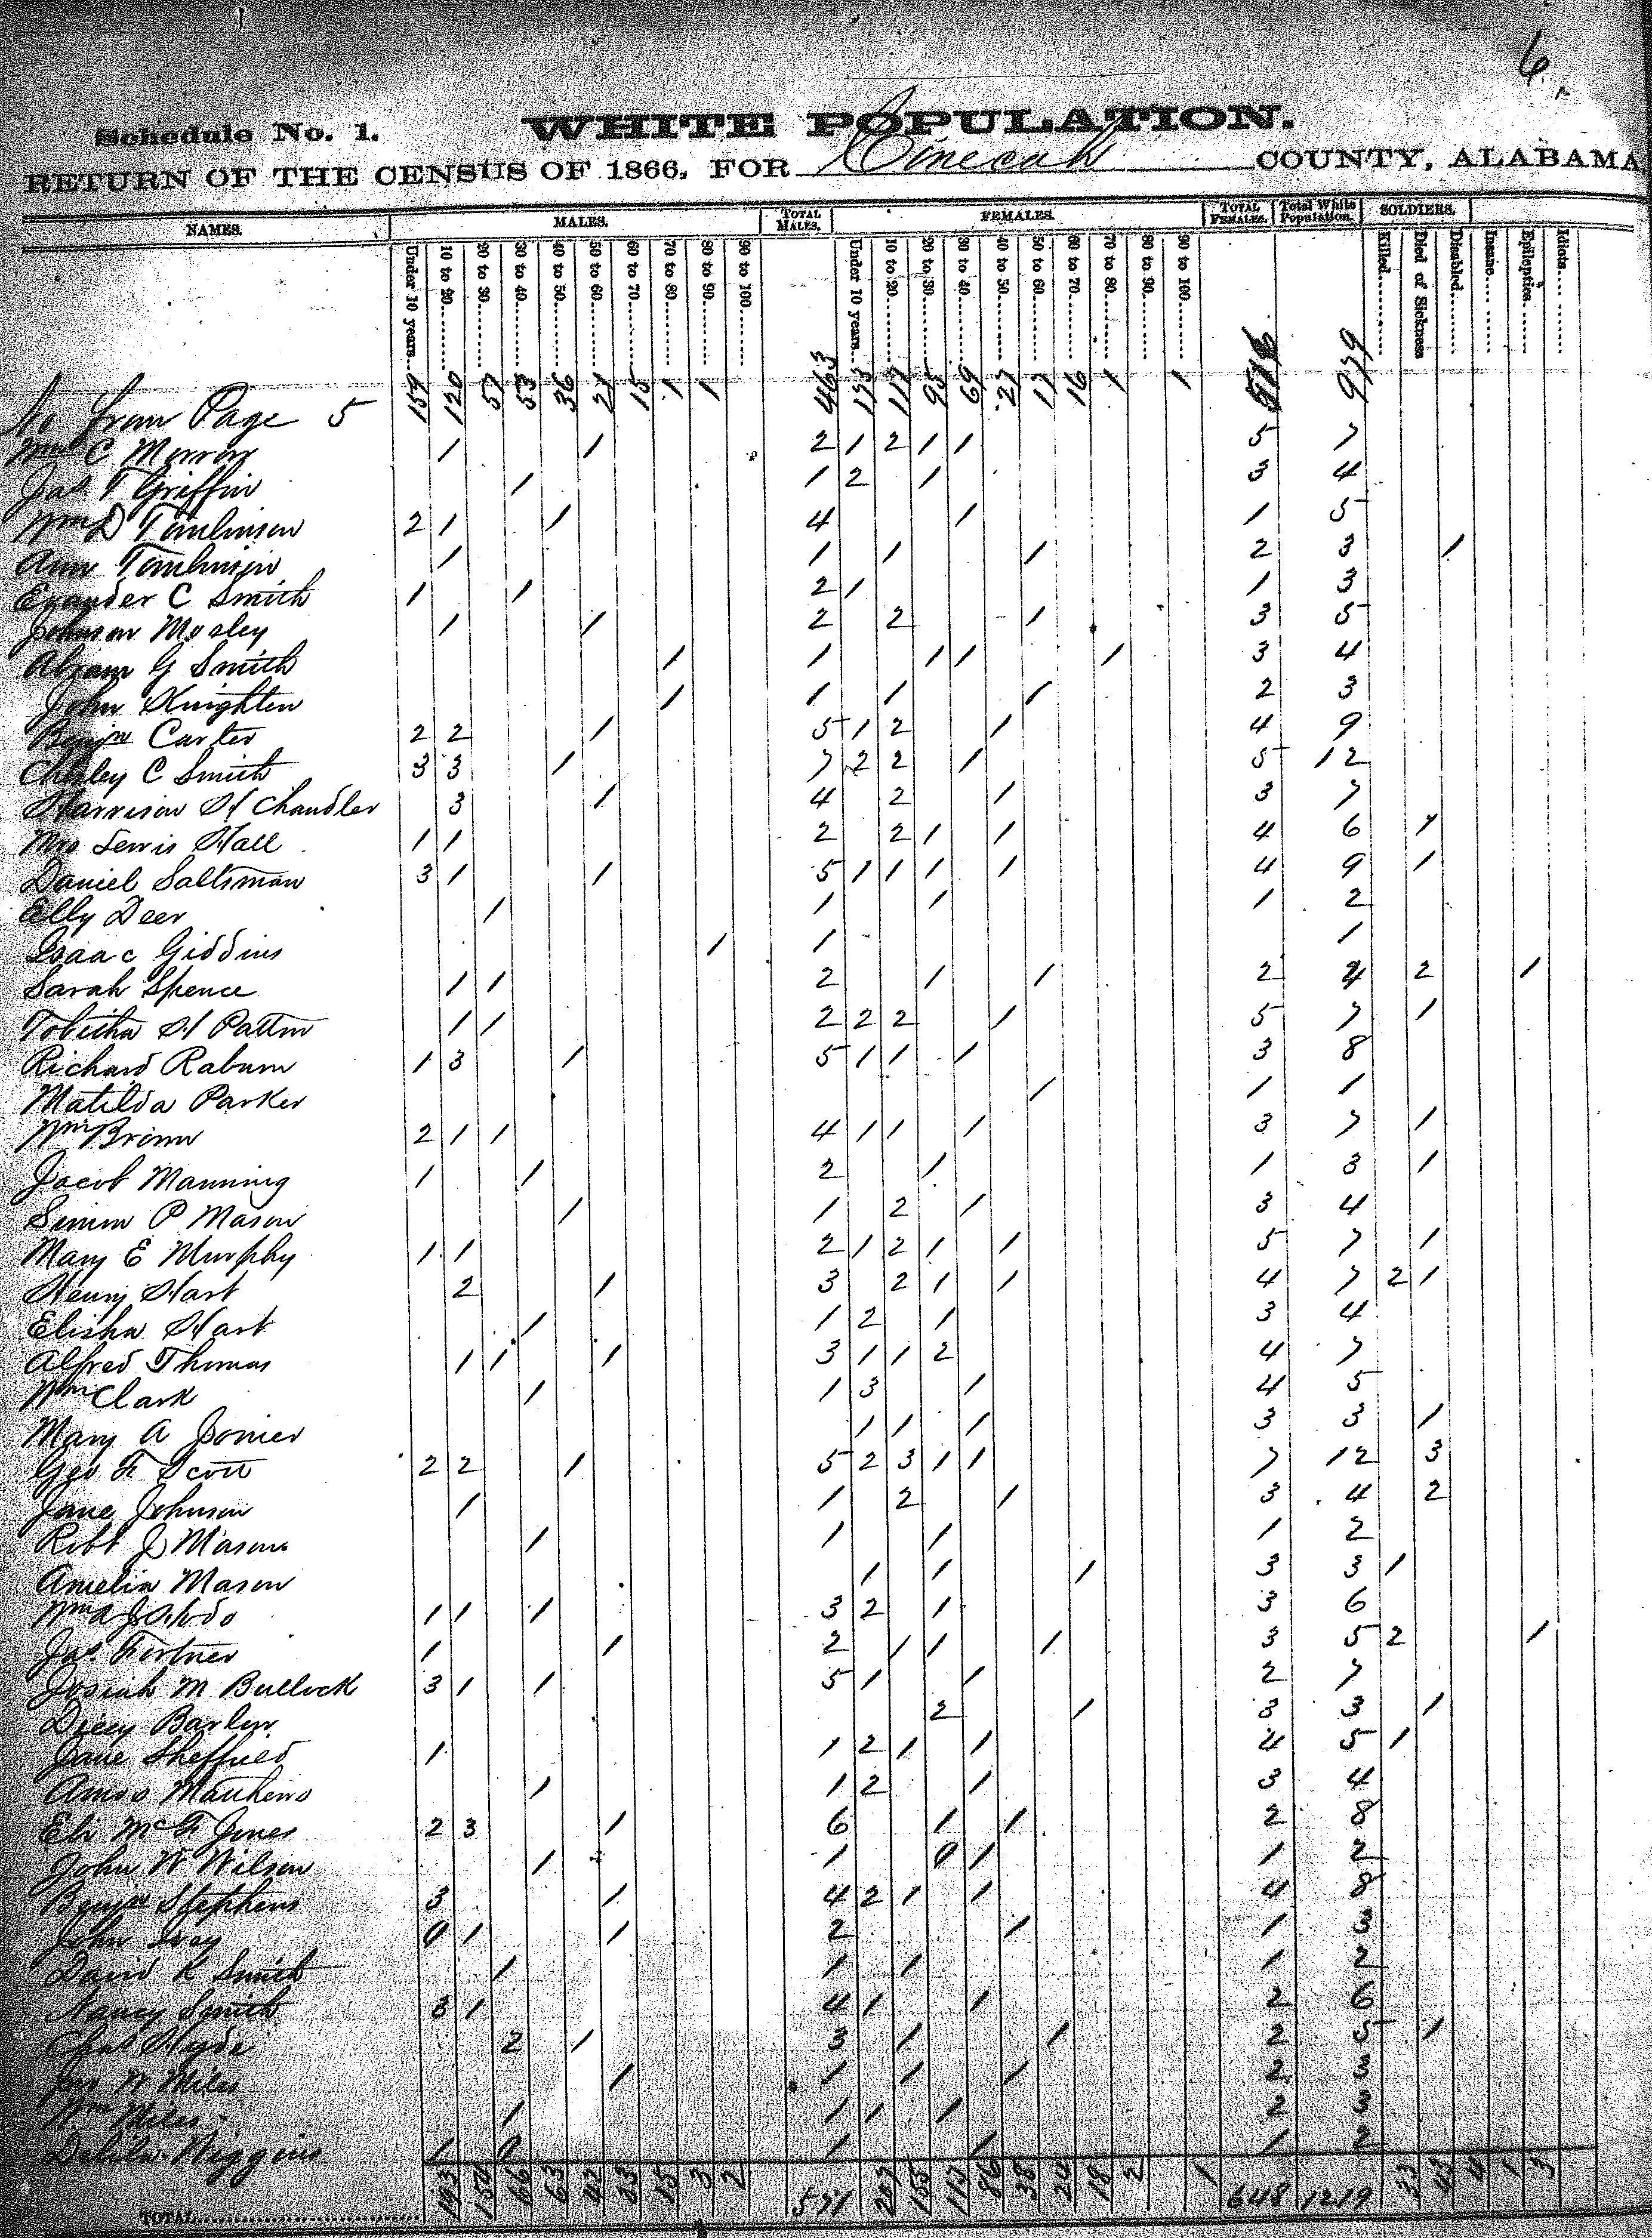 6
Schedule No. 1. WHITE POPULATION.
RETURN OF THE CENSUS OF 1866, FOR Conecuh COUNTY, ALABAMA
NAMES. MALES. TOTAL MALES. FEMALES. TOTAL FEMALES. Total White Population. SOLDIERS.
Under 10 years. 10 to 20. 20 to 30. 30 to 40. 40 to 50. 50 to 60. 60 to 70. 70 to 80. 80 to 90. 90 to 100. Under 10 years. 10 to 20. 20 to 30. 30 to 40. 40 to 50. 50 to 60. 60 to 70. 70 to 80. 80 to 90. 90 to 100. Killed. Died of Sickness Disabled. Insane. Epileptics. Idiots.
from Page 5 159 120 57 53 36 21 15 1 1 463 173 117 95 69 27 17 16 1 1 516 979
Wm C Morrow 1 1 2 1 2 1 1 5 7
Jas T Griffin 1 1 2 1 3 4
Wm D Tomlinson 2 1 1 4 1 1 5
Ann Tomlinson 1 1 1 1 2 3 1
Evander C Smith 1 1 2 1 1 3
Johnson Mosley 1 1 2 2 1 3 5
Abram G Smith 1 1 1 1 1 3 4
John Knighten 1 1 1 1 2 3
Benjn Carter 2 2 1 5 1 2 1 4 9
Chesley C Smith 3 3 1 7 2 2 1 5 12
Harrison H Chandler 3 1 4 2 1 3 7
Mrs Lewis Hall 1 1 2 2 1 1 4 6 1
Daniel Saltsman 3 1 1 5 1 1 1 1 4 9 1
Elly Deer 1 1 1 1 2
Isaac Giddins 1 1 1
Sarah Spence 1 1 2 1 1 2 4 2 1
Tobitha H Patton 1 1 2 2 2 1 5 7 1
Richard Raburn 1 3 1 5 1 1 1 3 8
Matilda Parker 1 1 1
Wm Brinn 2 1 1 4 1 1 1 3 7 1
Jacob Manning 1 1 2 1 1 3 1
Simon P Mason 1 1 2 1 3 4
Mary E Murphy 1 1 2 1 2 1 1 5 7 1
Henry Hart 2 1 3 2 1 1 4 7 2 1
Elisha Hart 1 1 2 1 3 4
Alfred Thomas 1 1 1 3 1 1 2 4 7
Wm Clark 1 1 3 1 4 5
Mary A Joiner 1 1 1 3 3 1
Geo F Scott 2 2 1 5 2 3 1 1 7 12 3
Jane Johnson 1 1 2 1 3 4 2
Robt J Mason 1 1 1 1 2
Amelia Mason 1 1 1 3 3 1
Wm 1 1 1 3 2 1 3 6
Jas Fortner 1 1 2 1 1 1 3 5 2 1
Josiah M Bullock 3 1 1 5 1 1 2 7
Dicey Barlow 2 1 3 3 1
Jane Sheffield 1 1 2 1 1 4 5 1
Amos Mathews 1 1 2 1 3 4
Eli McF Jones 2 3 1 6 1 1 2 8
John W Wilson 1 1 0 1 1 2
Benjn Stephens 3 1 4 2 1 1 4 8
John Ivey 0 1 1 2 1 1 3
David K Smith 1 1 1 1 2
Nancy Smith 3 1 4 1 1 2 6
Chas Hyde 2 1 3 1 1 2 5 1
Jno W Miles 1 1 1 1 2 3
Wm Miles 1 1 1 1 2 3
Delila Wiggins 1 0 1 1 1 2
TOTAL 193 154 66 63 42 33 15 3 2 571 207 155 113 86 38 24 18 2 1 648 1219 33 43 4 1 3